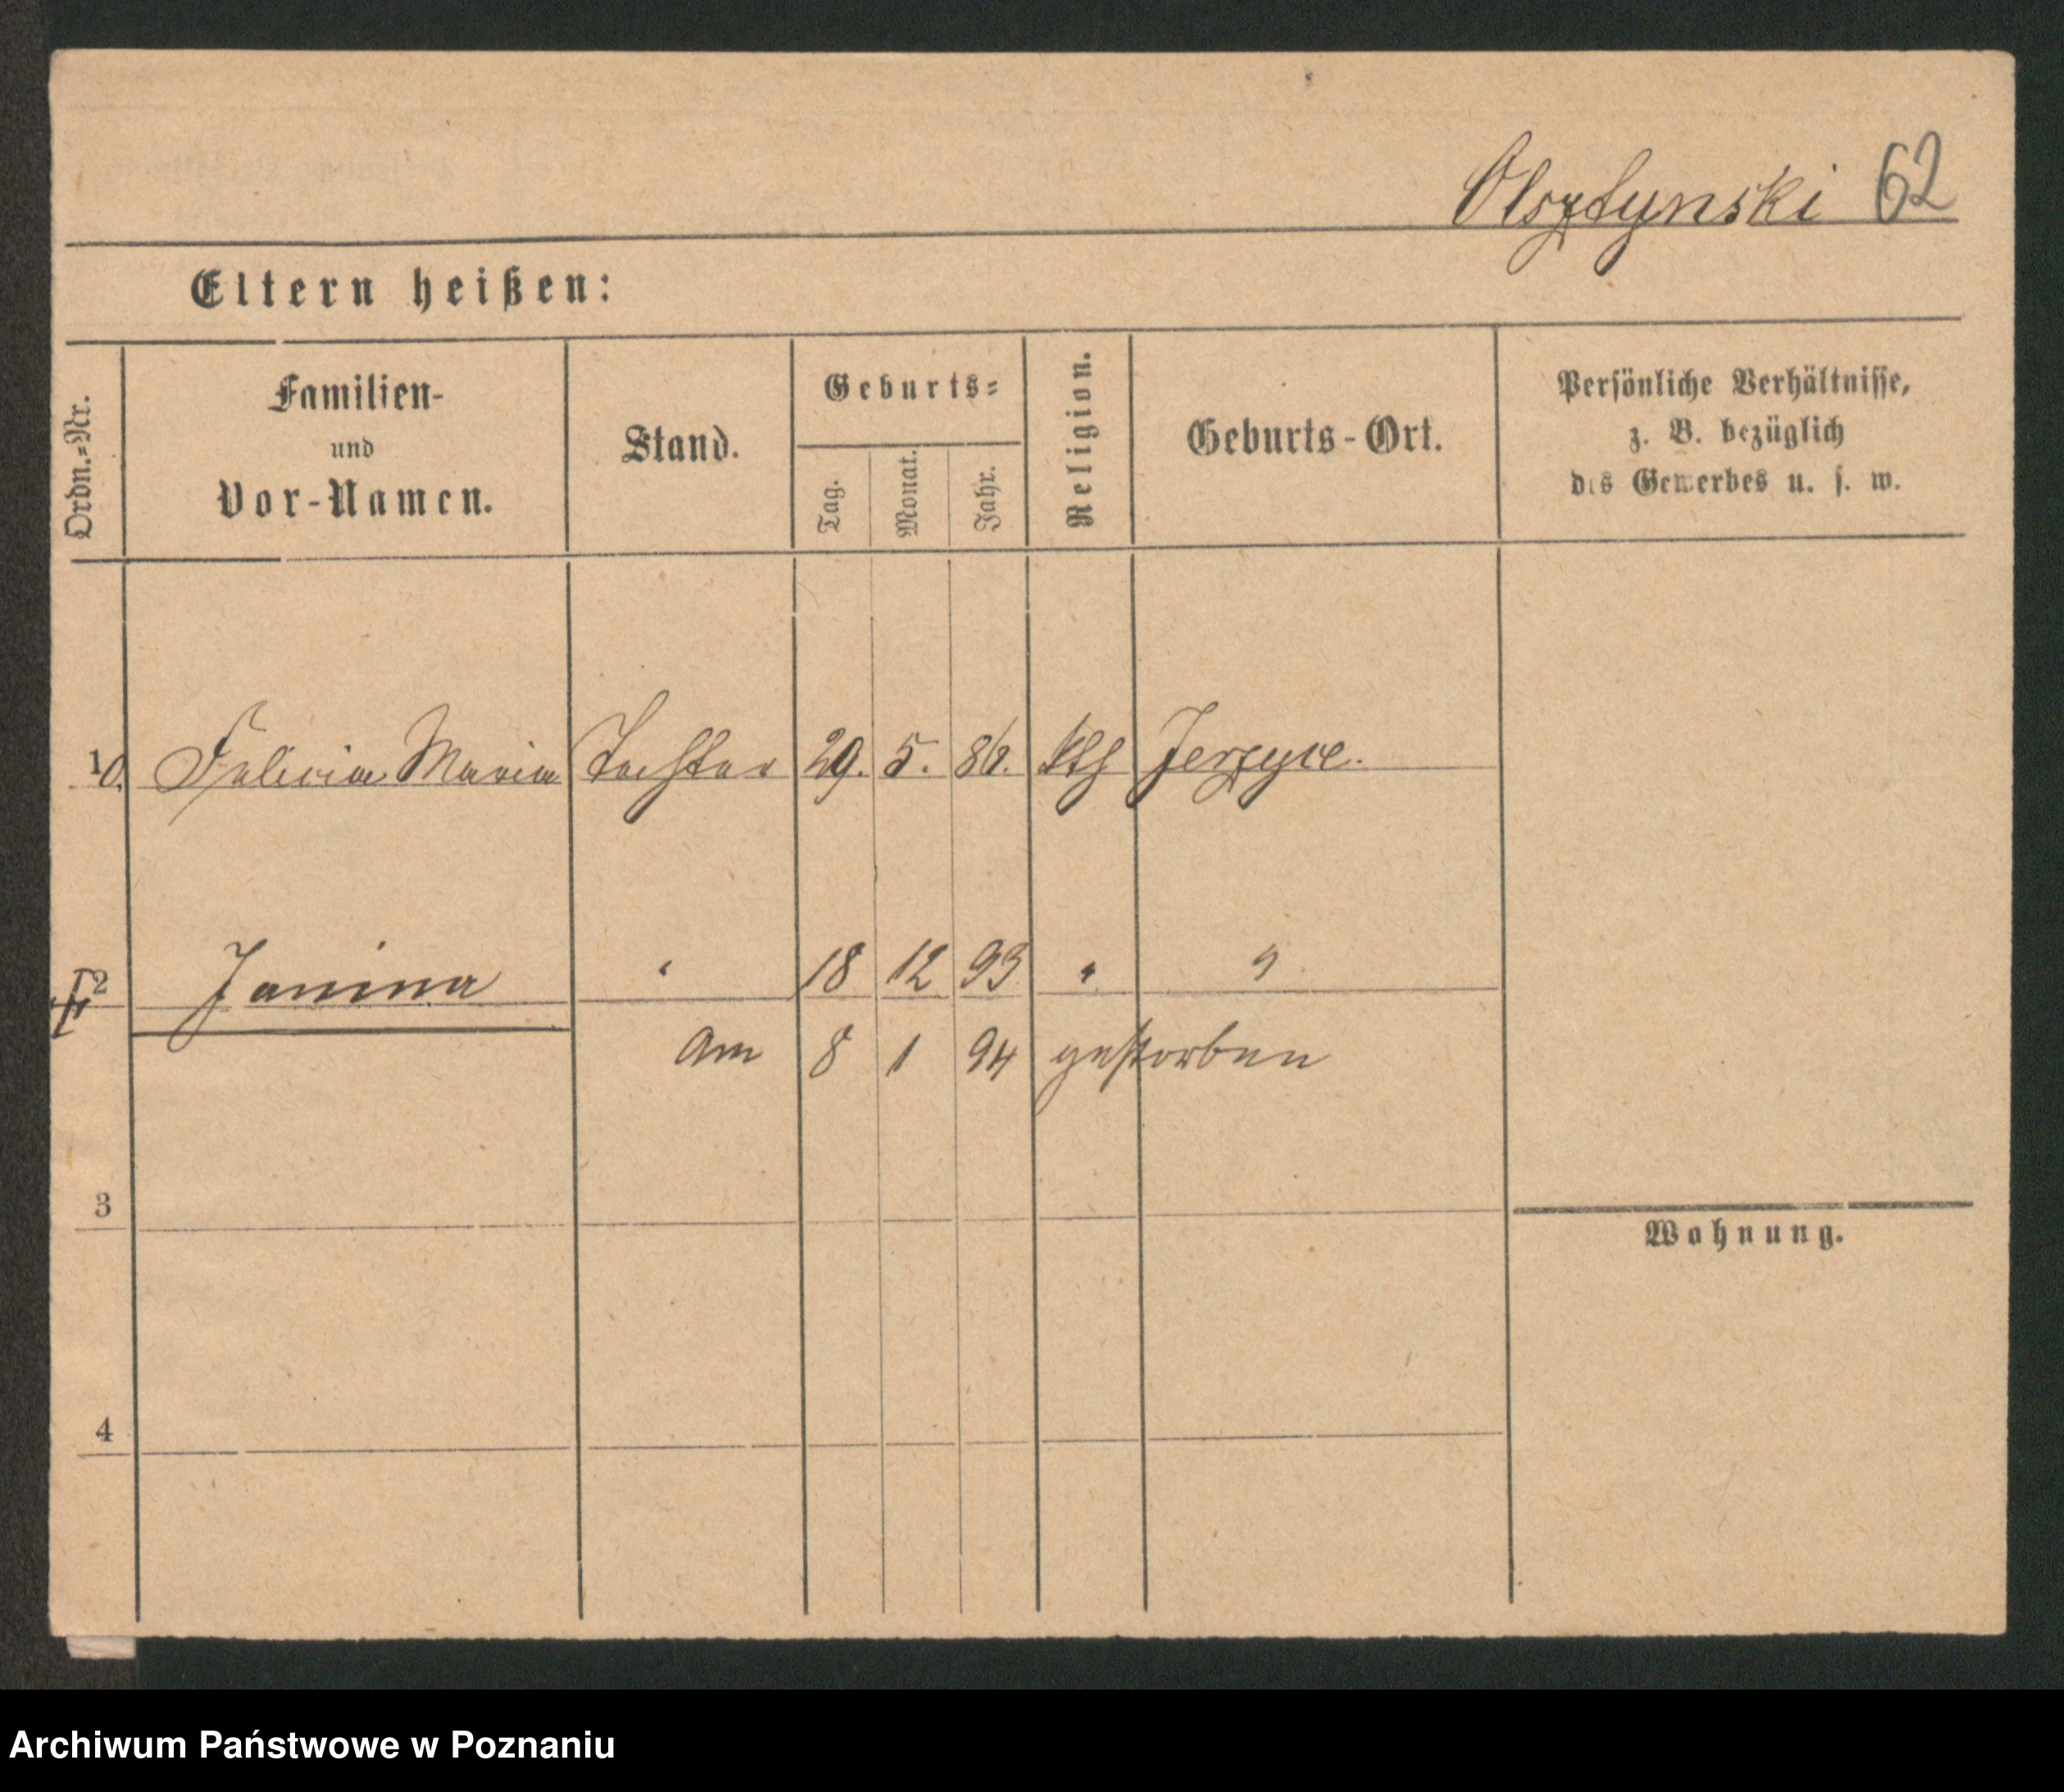 Olsztynski 62
Eltern heißen:
Ordn.-Nr.
Familien-
und
Vor-Namen.
Stand.
Geburts-
Tag.
Monat.
Jahr.
Religion.
Geburts-Ort.
Persönliche Verhältnisse,
z. B. bezüglich
des Gewerbes u. s. w.
10. Felicia Maria Tochter 29. 5. 86. kth Jerzyce.
2 Janina " 18 12 93 " "
am 8 1 94 gestorben
3
Wohnung.
4
Archiwum Państwowe w Poznaniu